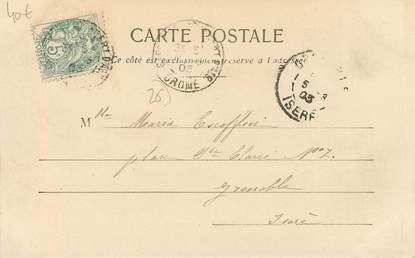 40€
CARTE POSTALE
Ce côté est exclusivement réservé à l'adresse
5
DROME
26)
5
03
ISERE
M lle Maria Escoffier
place Ste Claire No 7.
Grenoble
Isère